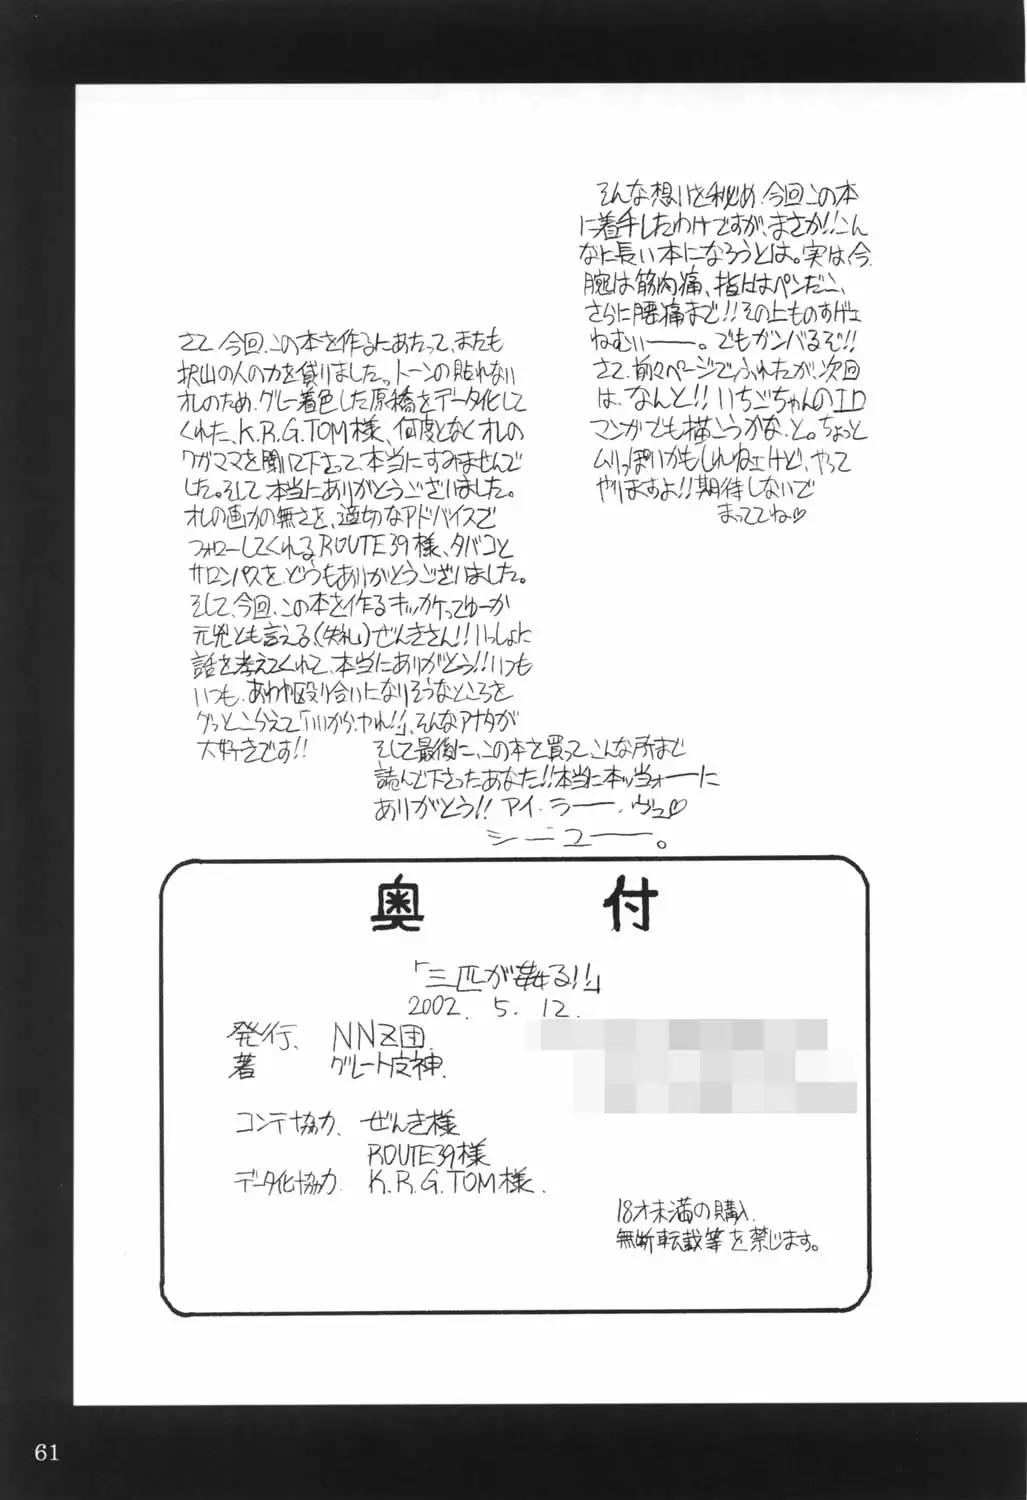 そんな想いを秘め、今回この本
に着手したわけですが、まさか!!こん
なに長い本になろうとは。実は、今、
腕は筋肉痛、指はペンだこ、
さらに腰痛まで!!その上ものすげェ
ねむいーーー。でもガンバるぞ!!
さて、前々ページでふれたが、次回
は、なんと!!いちごちゃんのエロ
マンガでも描こうかな、と。ちょっと
ムリっぽいかもしれねェけど、やって
やりますよ!!期待しないで
まっててね♡
さて、今回、この本を作るにあたって、またも
沢山の人の力を貸りました。トーンの貼れない
オレのため、グレー着色した原稿をデータ化して
くれた、K.R.G.TOM様、何度となくオレの
ワガママを聞いて下さって、本当にすみませんで
した。そして、本当にありがとうございました。
オレの画力の無さを、適切なアドバイスで
フォローしてくれる、ROUTE39様、タバコと
サロンパスを、どうもありがとうございました。
そして、今回、この本を作るキッカケってゆーか
元兇とも言える、(失礼)ぜんきさん!!いっしょに
話を考えてくれて、本当にありがとう!!いつも
いつも、あわや殴り合いになりそうなところを
グッとこらえて「いいから、やれ!!」、そんなアナタが
大好きです!!
そして最後に、この本を買って、こんな所まで
読んで下さったあなた!!本当に本ッ当ォーーに
ありがとう!!アイ・ラーー・ヴュ♡
シーユーー。
奥 付
「三匹が姦る!!」
2002. 5. 12.
発行、 NNZ団.
著 グレート皮神.
コンテ協力、ぜんき様
ROUTE39様
データ化協力、K.R.G.TOM様.
18才未満の購入、
無断転載等を禁じます。
61